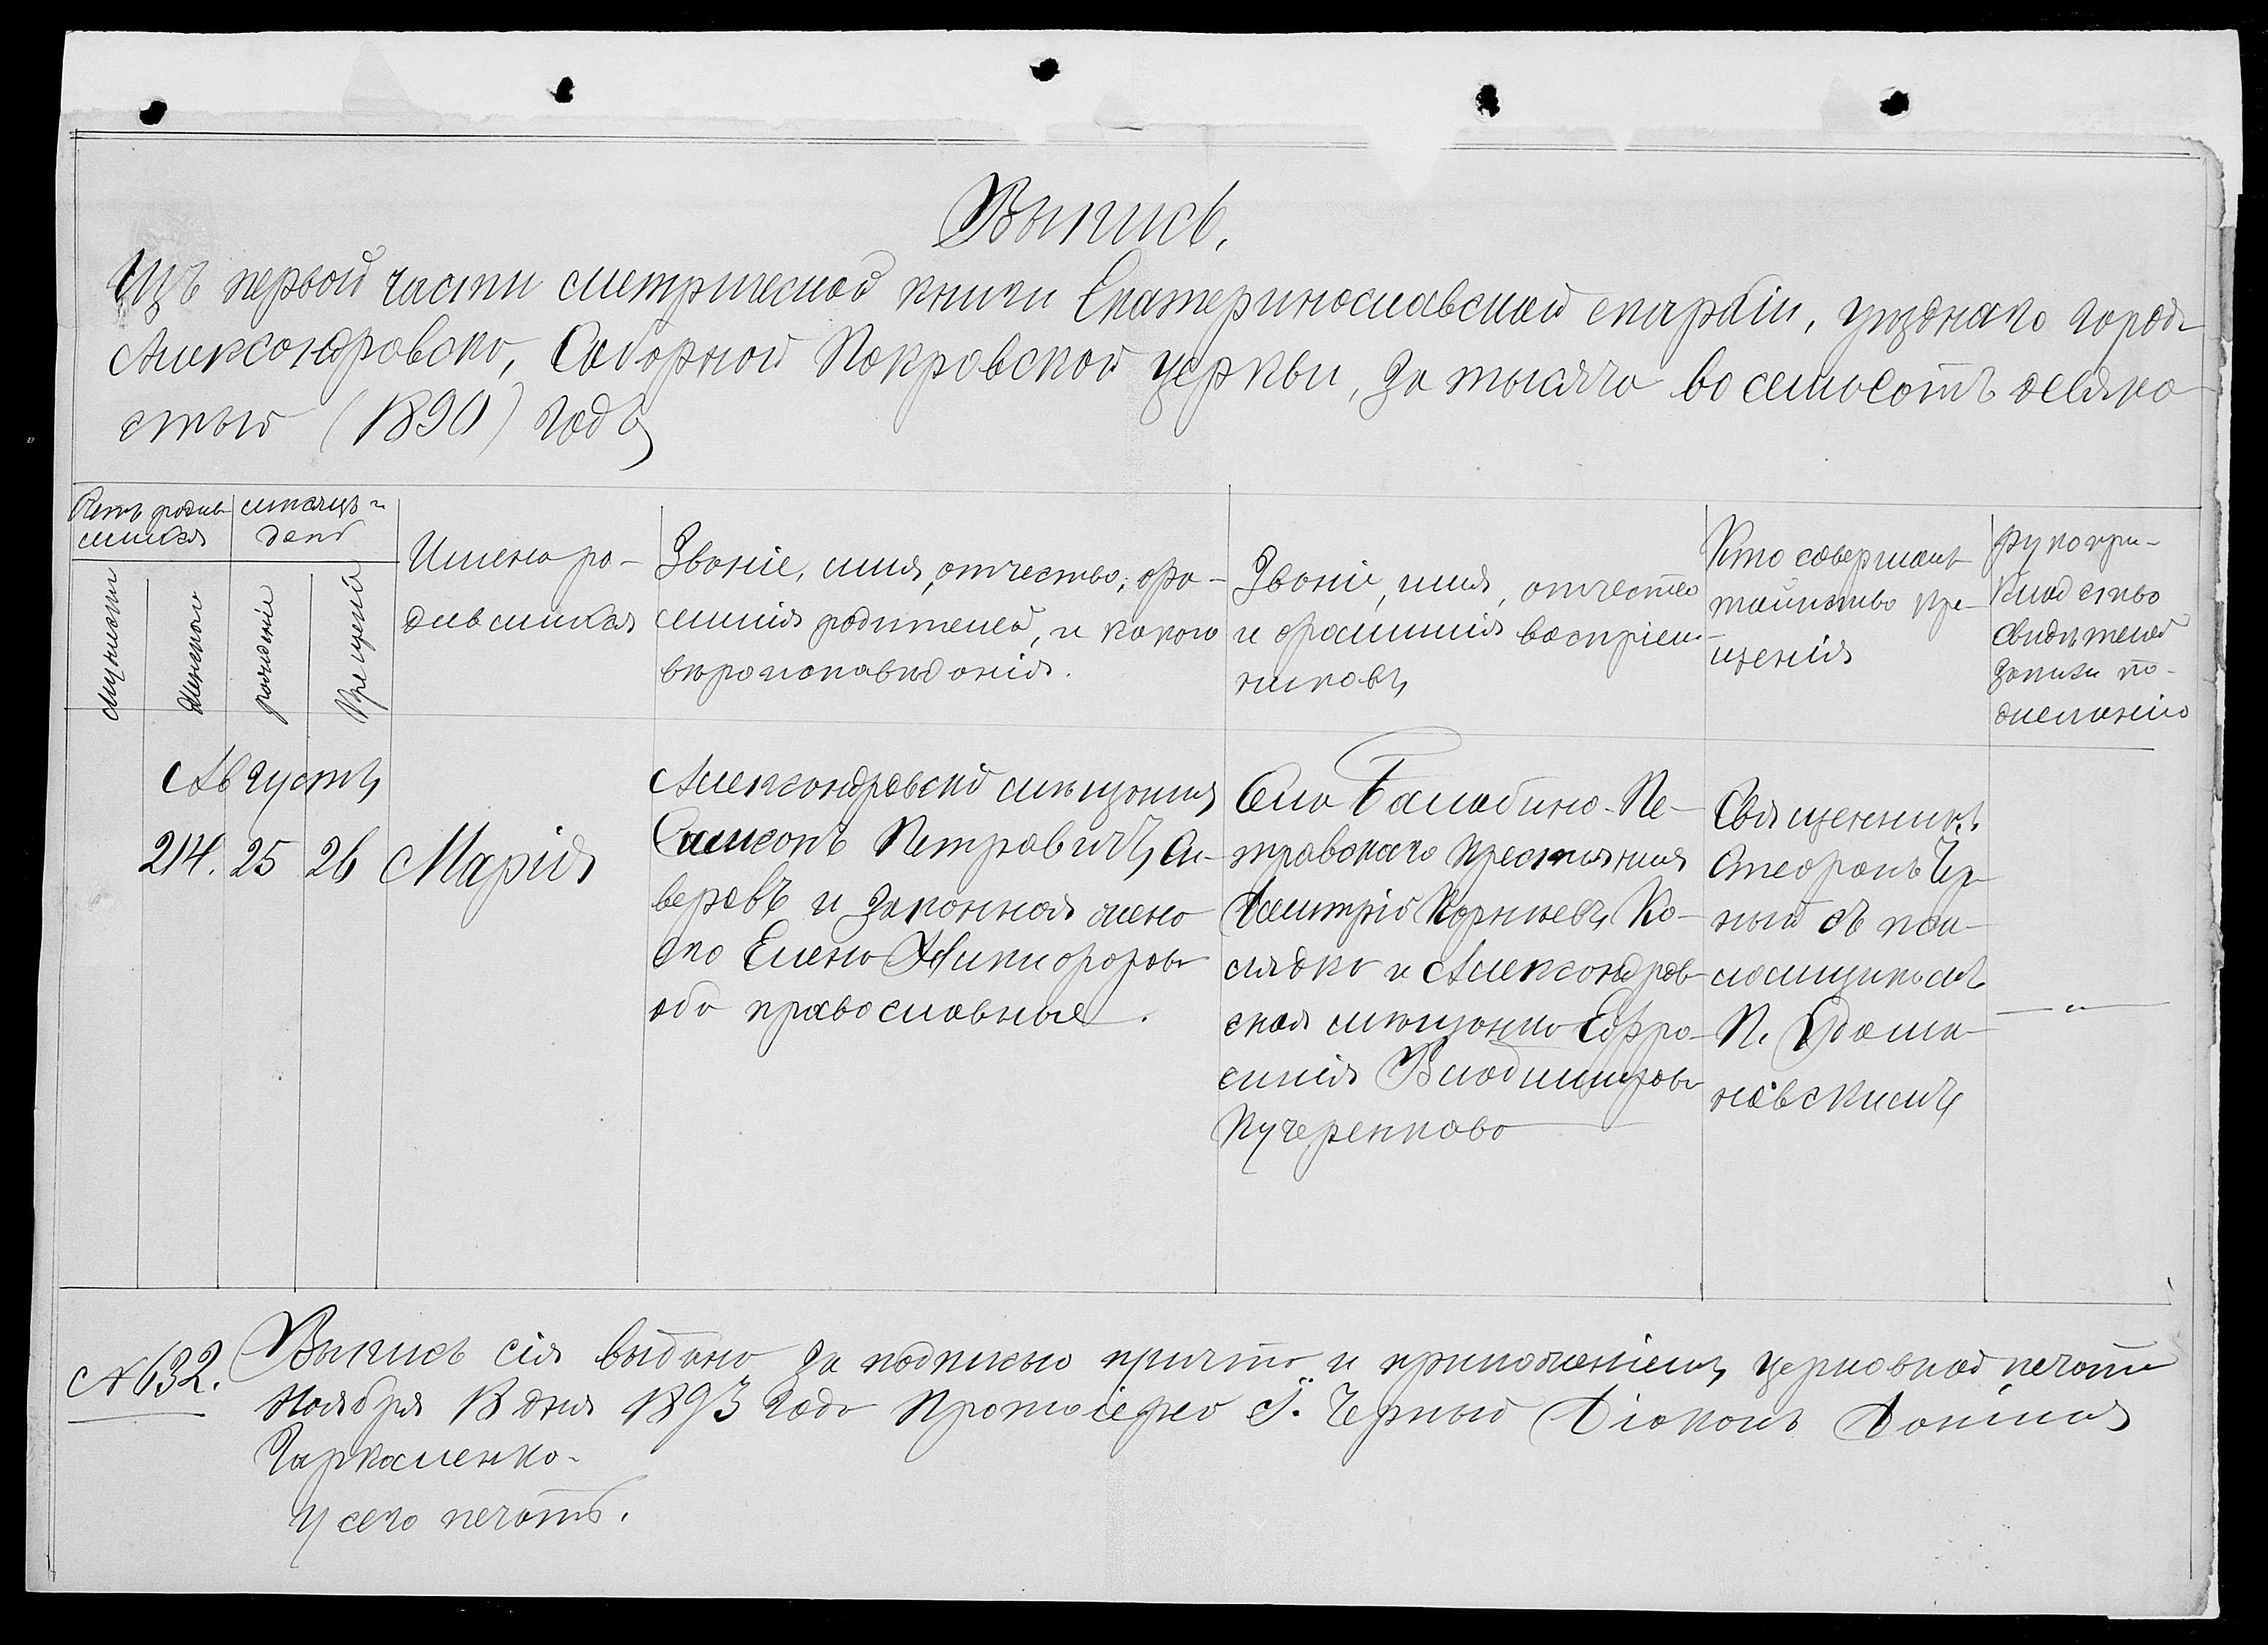 Выпись,
Изъ первой части метрической книги Екатеринославской епархіи, уѣзднаго города
Александровска, Соборной Покровской церкви, за тысяча восемьсотъ девяно
стый (1890) годъ
Счетъ родив
шихся
мѣсяцъ и
день
мужескаго
женскаго
рожденія
крещенія
Имена ро-
дившихся
Званіе, имя, отчество, фа-
милія родителей, и какого
вѣроисповѣданія.
Званіе, имя, отчество
и фамилія воспріем-
никовъ
Кто совершалъ
таинство кре-
щенія
Рукопри-
кладство
свидѣтелей
записи по
желанію
Августъ
214. 25 26 Марія
Александровскій мѣщанинъ
Самсонъ Петровичъ Аи-
веровъ и законная жена
его Елена Никифорова
оба православные.
Села Балабино-Пе-
тровскаго крестьянинъ
Димитрій Корнѣевъ Ко-
лядка и Александров-
ская мѣщанка Ефро-
синія Владимирова
Кучеренкова
Священникъ
Стефанъ Чер-
ный съ пса-
ломщикомъ
П. Адама-
новскимъ
— " —
№ 632. Выпись сія выдана за подписью причта и приложеніемъ церковной печати
Ноября 13 дня 1893 года Протоіерей І. Черный Діаконъ Даніилъ
Паркаменко.
У сего печать.